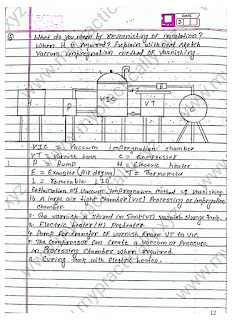 DATE
Q What do you mean by revarnishing of insulation?
When it is required? Explain with neat sketch
Vaccum impregnation method of varnishing.
H
P
VIC
VT
C
VIC Vaccum impregnation chamber
VT - Varnish tank C - Compressor
P - Pump H - Electric heater
E - Exauster (Air drying) T - Thermometer
L - removable LID
Explanation of Vaccum Impregnation Method of Varnishing
A large air tight chamber (VIC) Processing or impregnation
chamber.
The varnish is stored in Tank (VT) varnish storage tank.
Electric heater (H) Preheater
Pump for transfer of varnish from VT to VIC
The compressor can create a vaccum or pressure
in processing chamber when required.
Curing tank with electric heater.
12